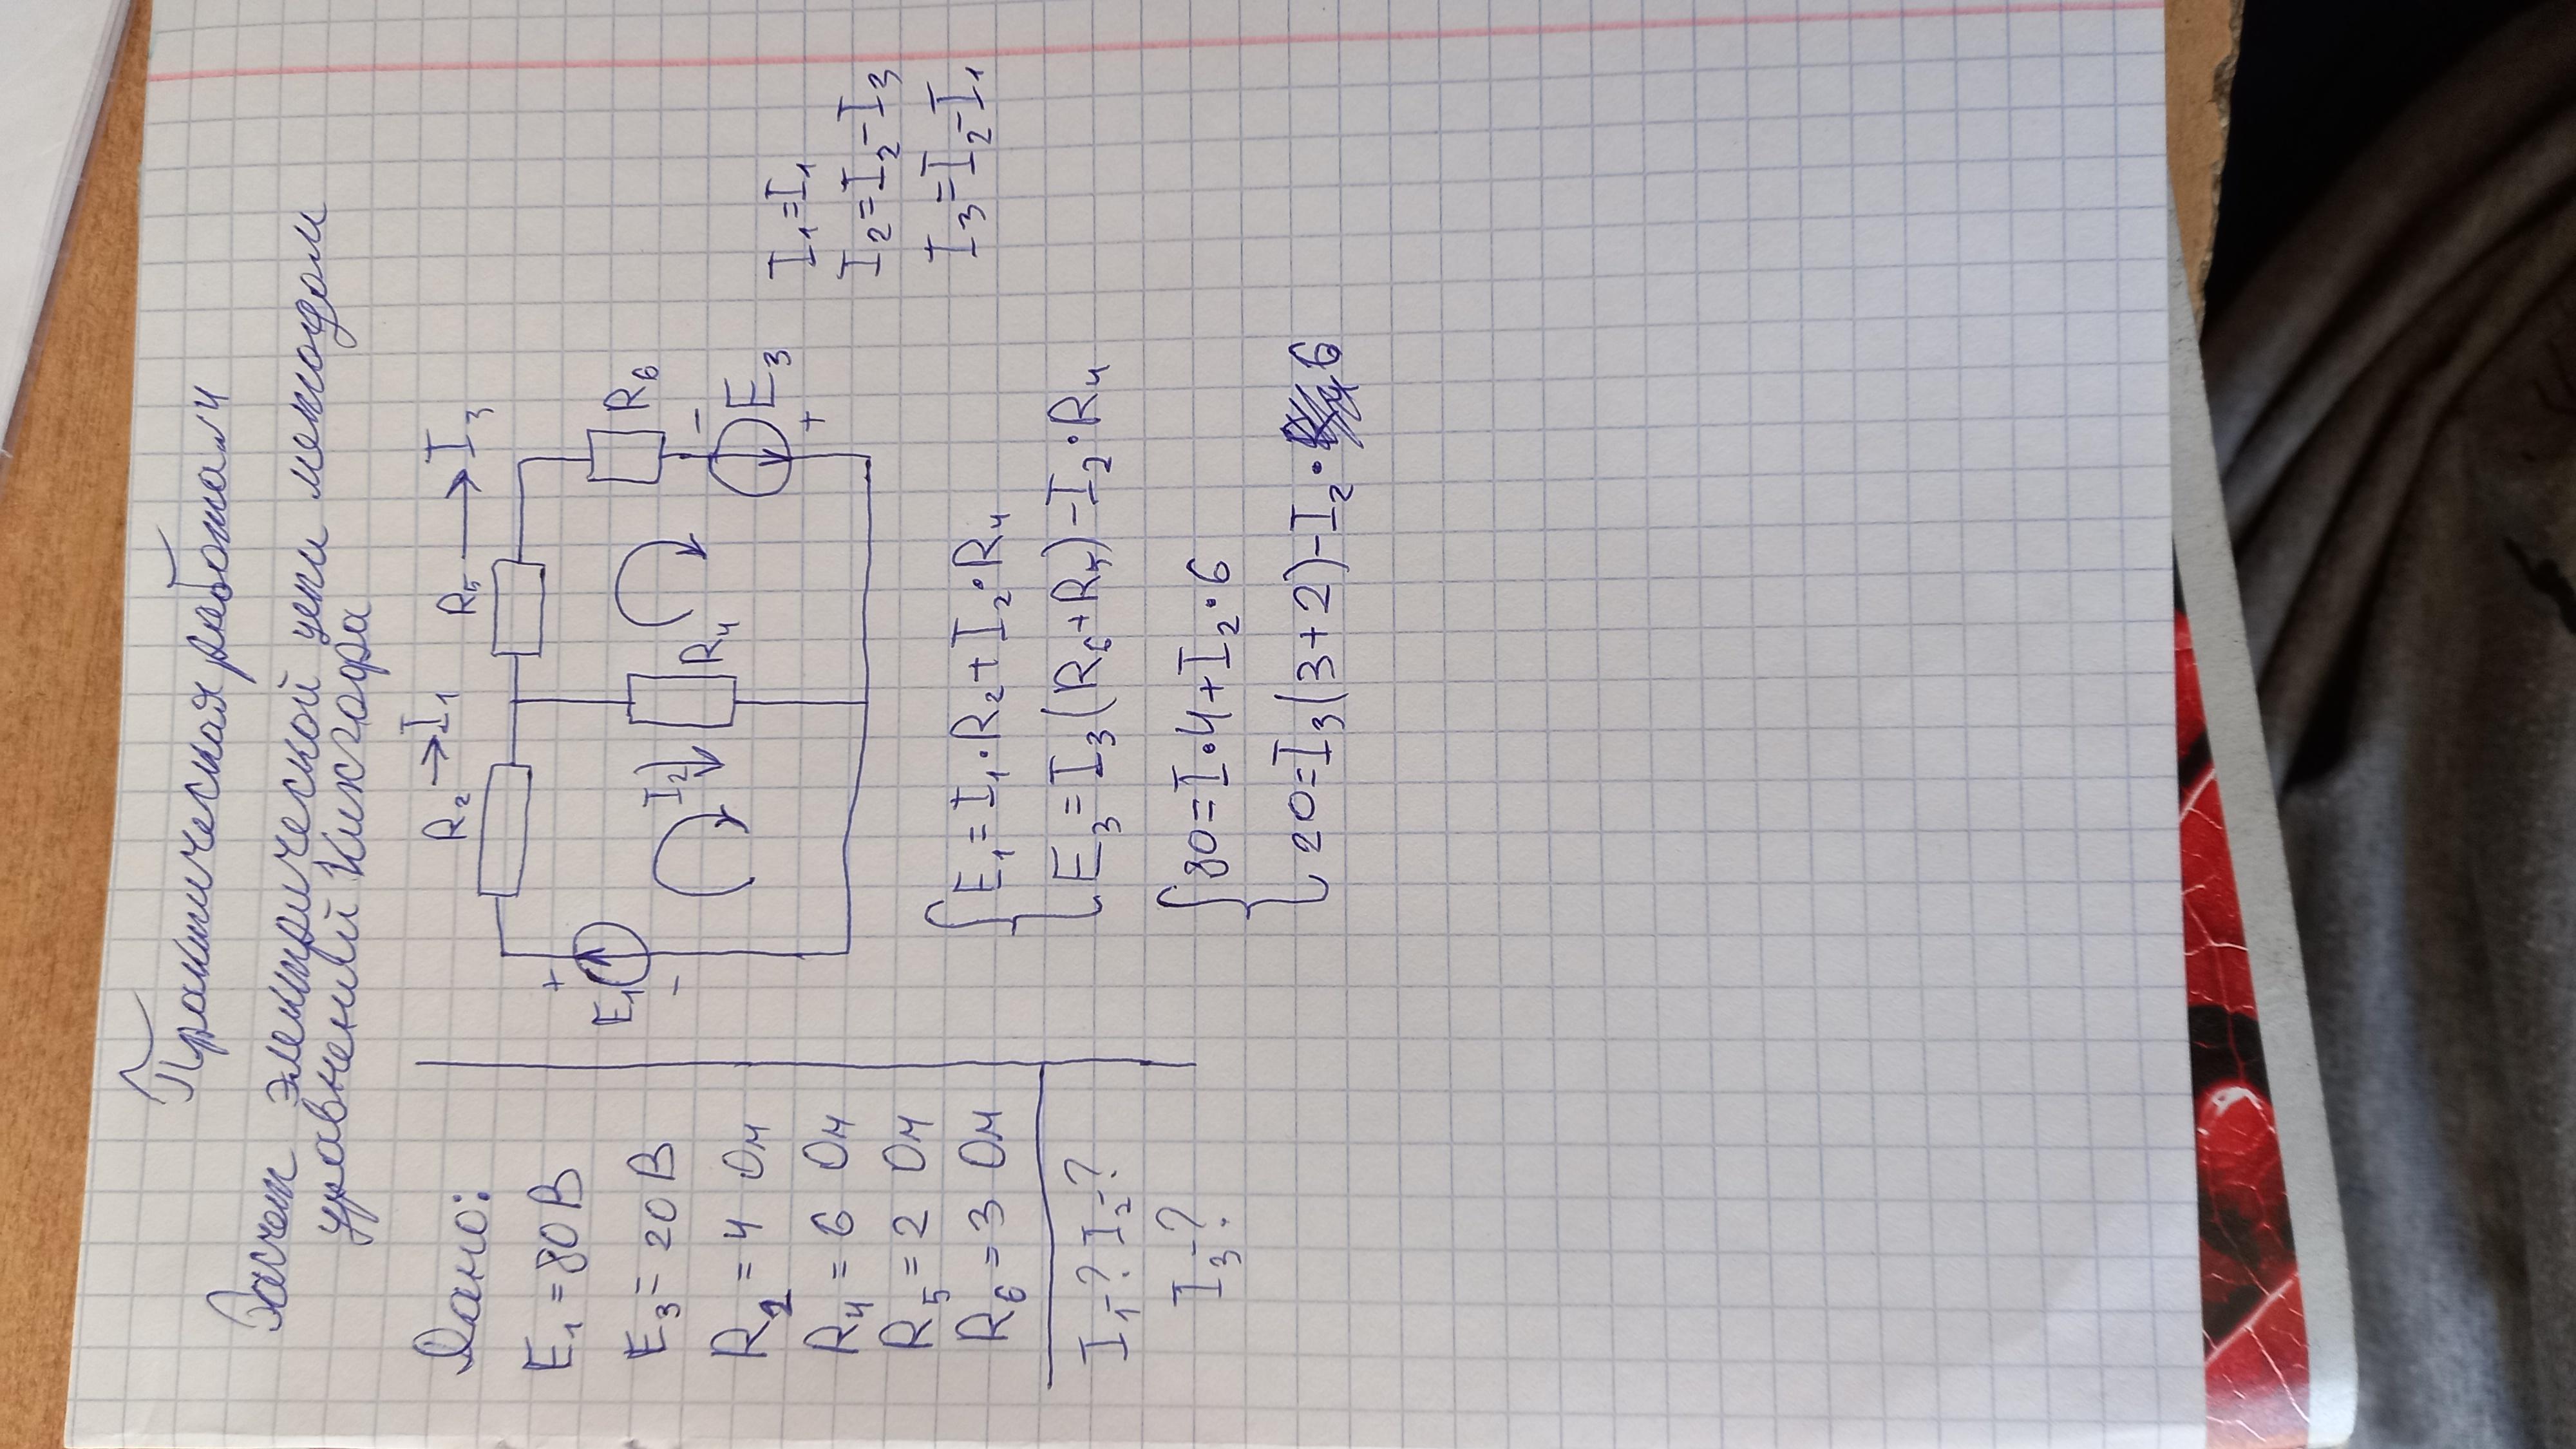 Практическая работа №4
Расчет электрической цепи методом
уравнений Кирхгофа
Дано:
E1 = 80В
E3 = 20 В
R2 = 4 Ом
R4 = 6 Ом
R5 = 2 Ом
R6 = 3 Ом
I1-? I2-?
I3-?
R2 → I1
R5 → I3
E1
+
-
I2
R4
R6
-
E3
+
I1=I1
I2=I2-I3
I3=I2-I1
E1=I1·R2+I2·R4
E3=I3(R6+R5)-I2·R4
80=I·4+I2·6
20=I3(3+2)-I2·6